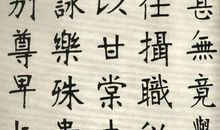 甚無竟學
仕攝職從
以甘棠去
詠樂殊貴
別尊卑上